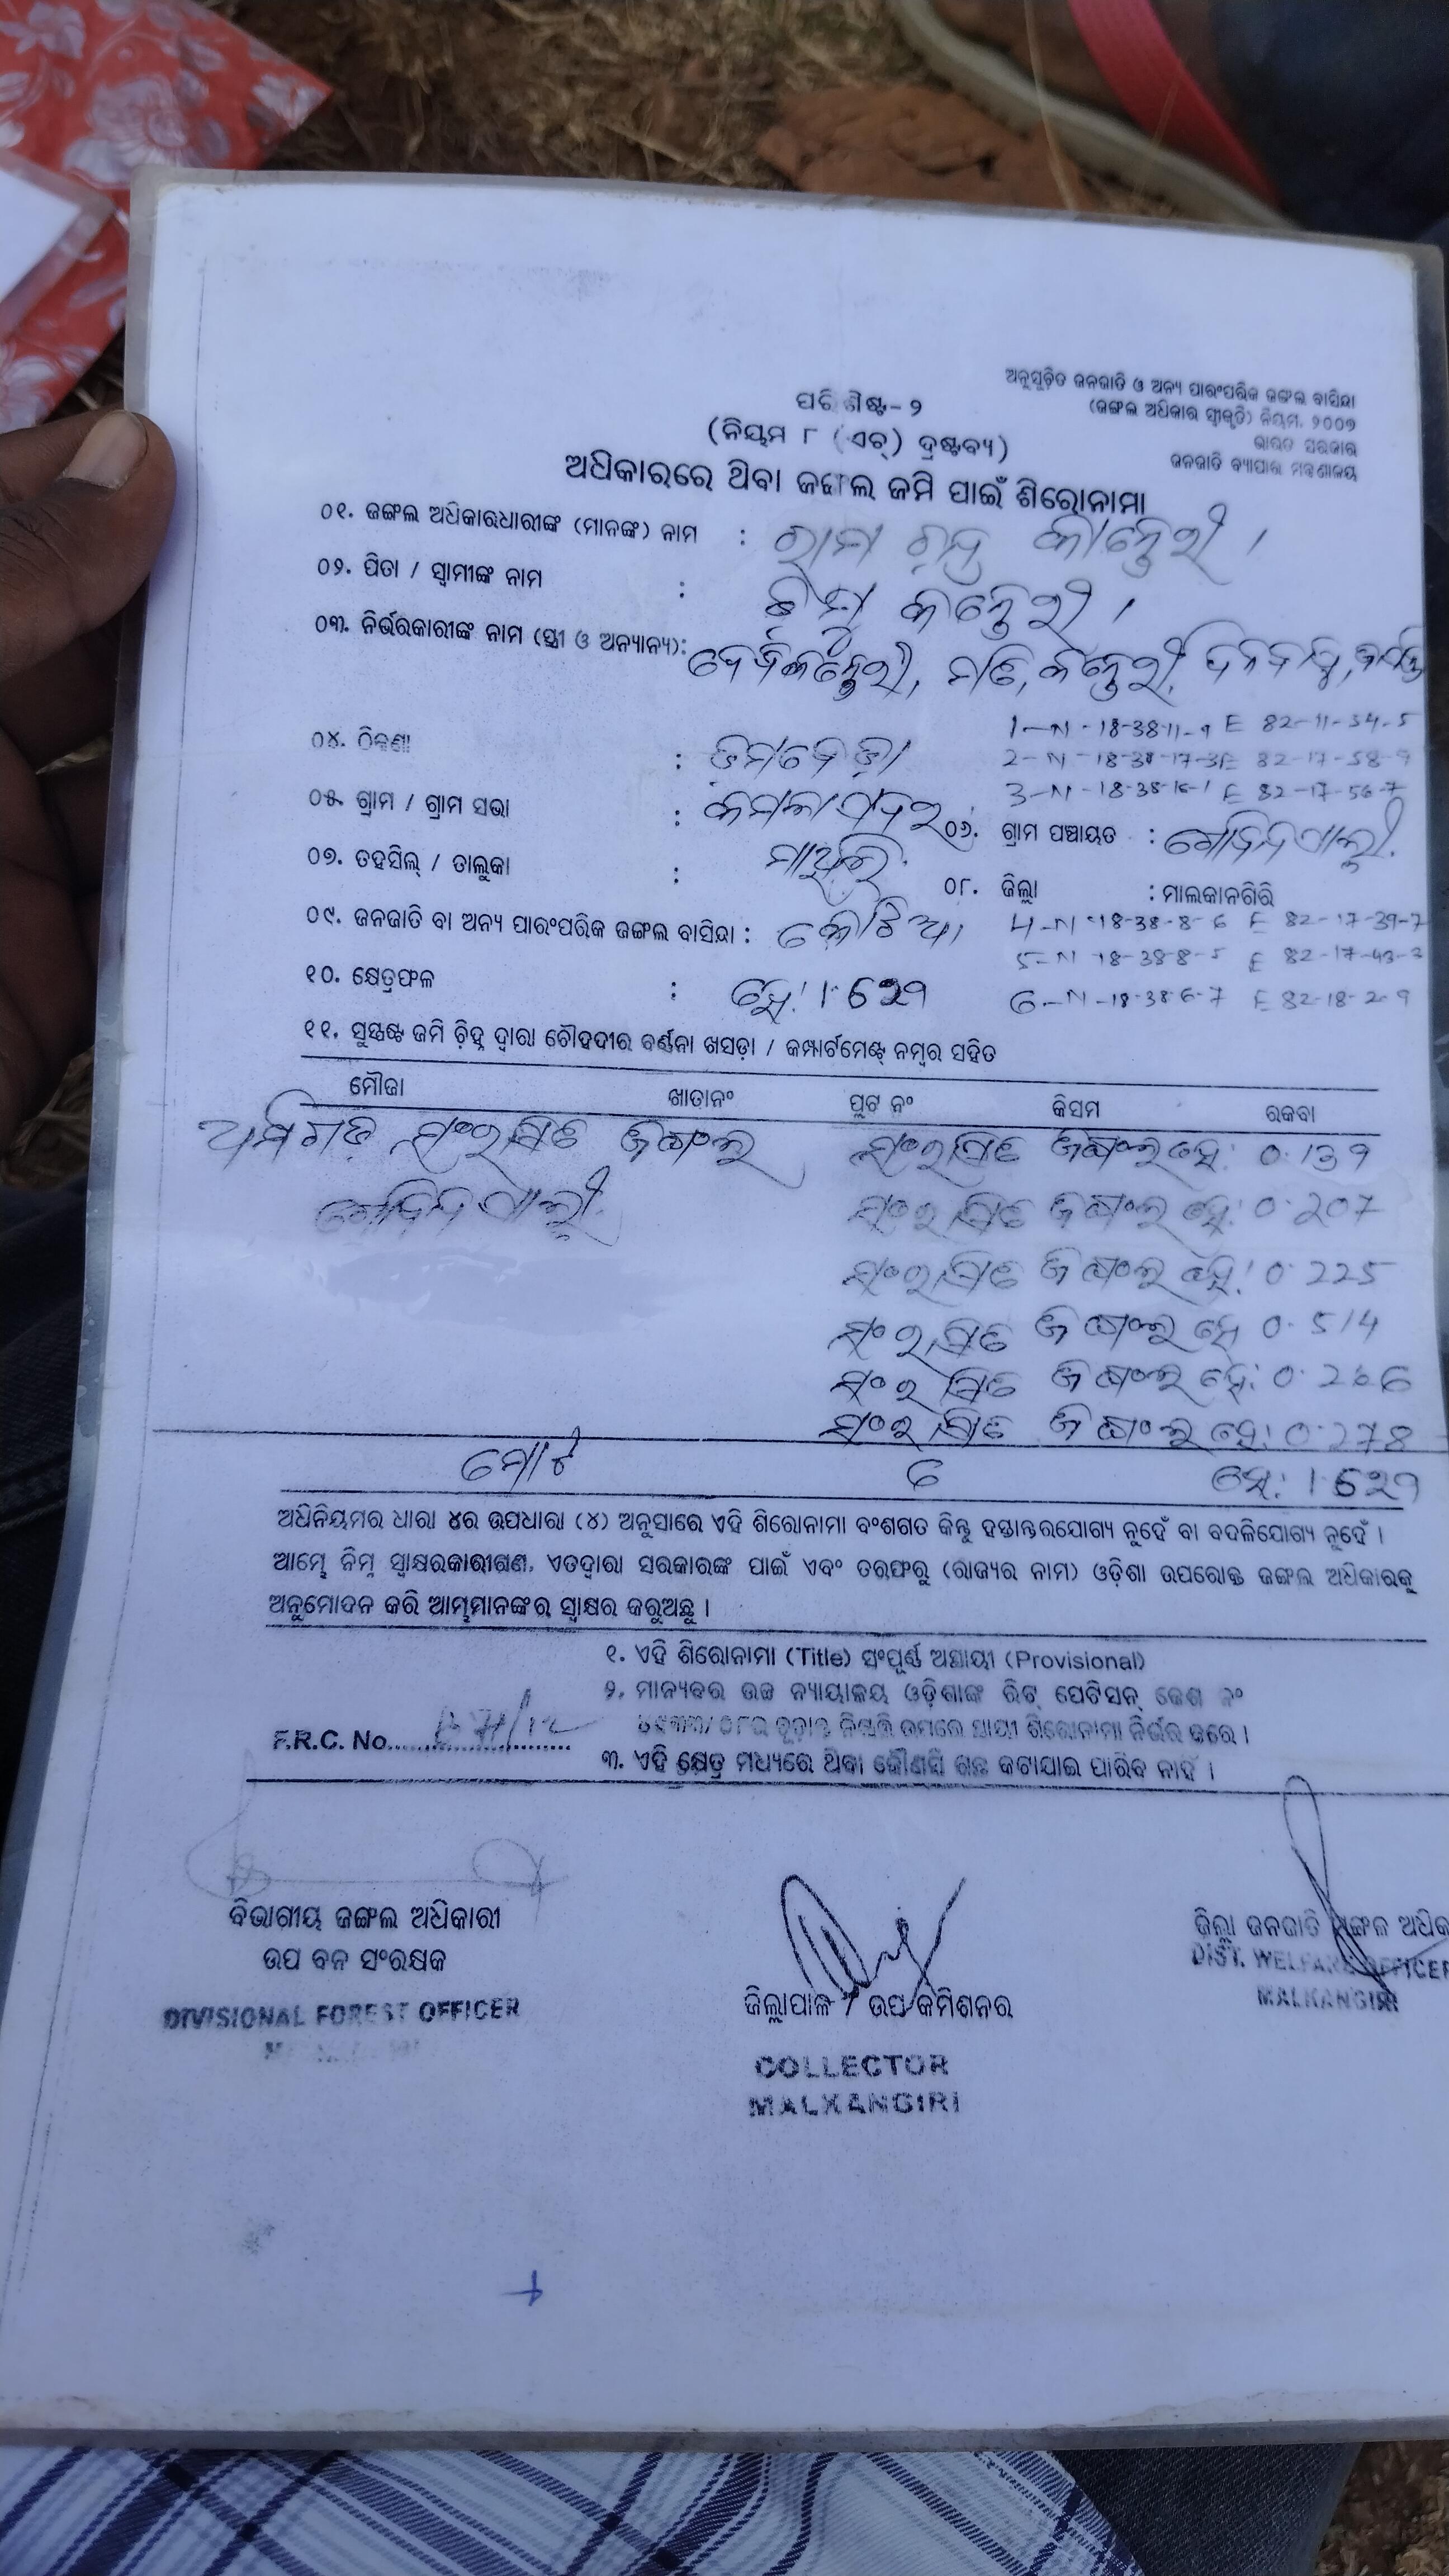 ଅନୁସୂଚିତ ଜନଜାତି ଓ ଅନ୍ୟ ପାରଂପରିକ ଜଙ୍ଗଲ ବାସିନ୍ଦା
(ଜଙ୍ଗଲ ଅଧିକାର ସ୍ୱୀକୃତି) ନିୟମ, ୨୦୦୭
ଭାରତ ସରକାର
ଜନଜାତି ବ୍ୟାପାର ମନ୍ତ୍ରଣାଳୟ
ପରିଶିଷ୍ଟ-୨
(ନିୟମ ୮ (ଏଚ୍) ଦ୍ରଷ୍ଟବ୍ୟ)
ଅଧିକାରରେ ଥିବା ଜଙ୍ଗଲ ଜମି ପାଇଁ ଶିରୋନାମା
୦୧. ଜଙ୍ଗଲ ଅଧିକାରଧାରୀଙ୍କ (ମାନଙ୍କ) ନାମ : ରାମ ଚନ୍ଦ୍ର
୦୨. ପିତା / ସ୍ୱାମୀଙ୍କ ନାମ :
୦୩. ନିର୍ଭରକାରୀଙ୍କ ନାମ (ସ୍ତ୍ରୀ ଓ ଅନ୍ୟାନ୍ୟ):
1-N-18-38-11-9 E 82-11-54-5
୦୪. ଠିକଣା :
2-N-18-38-17-3 E 82-17-58-9
3-N-18-38-16-1 E 82-17-56-7
୦୫. ଗ୍ରାମ / ଗ୍ରାମ ସଭା :
୦୬. ଗ୍ରାମ ପଞ୍ଚାୟତ : ଗୋବିନ୍ଦପାଲ୍ଲୀ
୦୭. ତହସିଲ୍ / ତାଲୁକା : ମାଥିଲି
୦୮. ଜିଲ୍ଲା : ମାଲକାନଗିରି
୦୯. ଜନଜାତି ବା ଅନ୍ୟ ପାରଂପରିକ ଜଙ୍ଗଲ ବାସିନ୍ଦା :
4-N-18-38-8-6 E 82-17-39-7
5-N-18-38-8-5 E 82-17-43-3
୧୦. କ୍ଷେତ୍ରଫଳ : ହେ: 1.629
6-N-18-38-6-7 E 82-18-2-9
୧୧. ସୁସ୍ପଷ୍ଟ ଜମି ଚିହ୍ନ ଦ୍ୱାରା ଚୌହଦୀର ବର୍ଣ୍ଣନା ଖସଡ଼ା / କମ୍ପାର୍ଟମେଣ୍ଟ୍ ନମ୍ବର ସହିତ
ମୌଜା ଖାତାନଂ ପ୍ଲଟ ନଂ କିସମ ରକବା
ସଂରକ୍ଷିତ ଜଙ୍ଗଲ ସଂରକ୍ଷିତ ଜଙ୍ଗଲ ହେ: 0.139
ଗୋବିନ୍ଦପାଲ୍ଲୀ ସଂରକ୍ଷିତ ଜଙ୍ଗଲ ହେ: 0.207
ସଂରକ୍ଷିତ ଜଙ୍ଗଲ ହେ: 0.225
ସଂରକ୍ଷିତ ଜଙ୍ଗଲ ହେ 0.514
ସଂରକ୍ଷିତ ଜଙ୍ଗଲ ହେ: 0.266
ସଂରକ୍ଷିତ ଜଙ୍ଗଲ ହେ: 0.278
ମୋଟ 6 ହେ: 1.629
ଅଧିନିୟମର ଧାରା ୪ର ଉପଧାରା (୪) ଅନୁସାରେ ଏହି ଶିରୋନାମା ବଂଶଗତ କିନ୍ତୁ ହସ୍ତାନ୍ତରଯୋଗ୍ୟ ନୁହେଁ ବା ବଦଳିଯୋଗ୍ୟ ନୁହେଁ ।
ଆମ୍ଭେ ନିମ୍ନ ସ୍ୱାକ୍ଷରକାରୀଗଣ, ଏତଦ୍ୱାରା ସରକାରଙ୍କ ପାଇଁ ଏବଂ ତରଫରୁ (ରାଜ୍ୟର ନାମ) ଓଡ଼ିଶା ଉପରୋକ୍ତ ଜଙ୍ଗଲ ଅଧିକାରକୁ
ଅନୁମୋଦନ କରି ଆମ୍ଭମାନଙ୍କର ସ୍ୱାକ୍ଷର କରୁଅଛୁ ।
୧. ଏହି ଶିରୋନାମା (Title) ସଂପୂର୍ଣ୍ଣ ଅସ୍ଥାୟୀ (Provisional)
୨. ମାନ୍ୟବର ଉଚ୍ଚ ନ୍ୟାୟାଳୟ ଓଡ଼ିଶାଙ୍କ ରିଟ୍ ପେଟିସନ୍ କେଶ ନଂ
ଚୂଡ଼ାନ୍ତ ନିଷ୍ପତ୍ତି ଉପରେ ସ୍ଥାୟୀ ଶିରୋନାମା ନିର୍ଭର କରେ ।
F.R.C. No.
୩. ଏହି କ୍ଷେତ୍ର ମଧ୍ୟରେ ଥିବା କୌଣସି ଗଛ କଟାଯାଇ ପାରିବ ନାହିଁ ।
ବିଭାଗୀୟ ଜଙ୍ଗଲ ଅଧିକାରୀ
ଉପ ବନ ସଂରକ୍ଷକ
DIVISIONAL FOREST OFFICER
ଜିଲ୍ଲାପାଳ / ଉପ କମିଶନର
COLLECTOR
MALKANGIRI
ଜିଲ୍ଲା ଜନଜାତି ମଙ୍ଗଳ ଅଧିକ
DIST. WELFARE OFFICER
MALKANGIRI